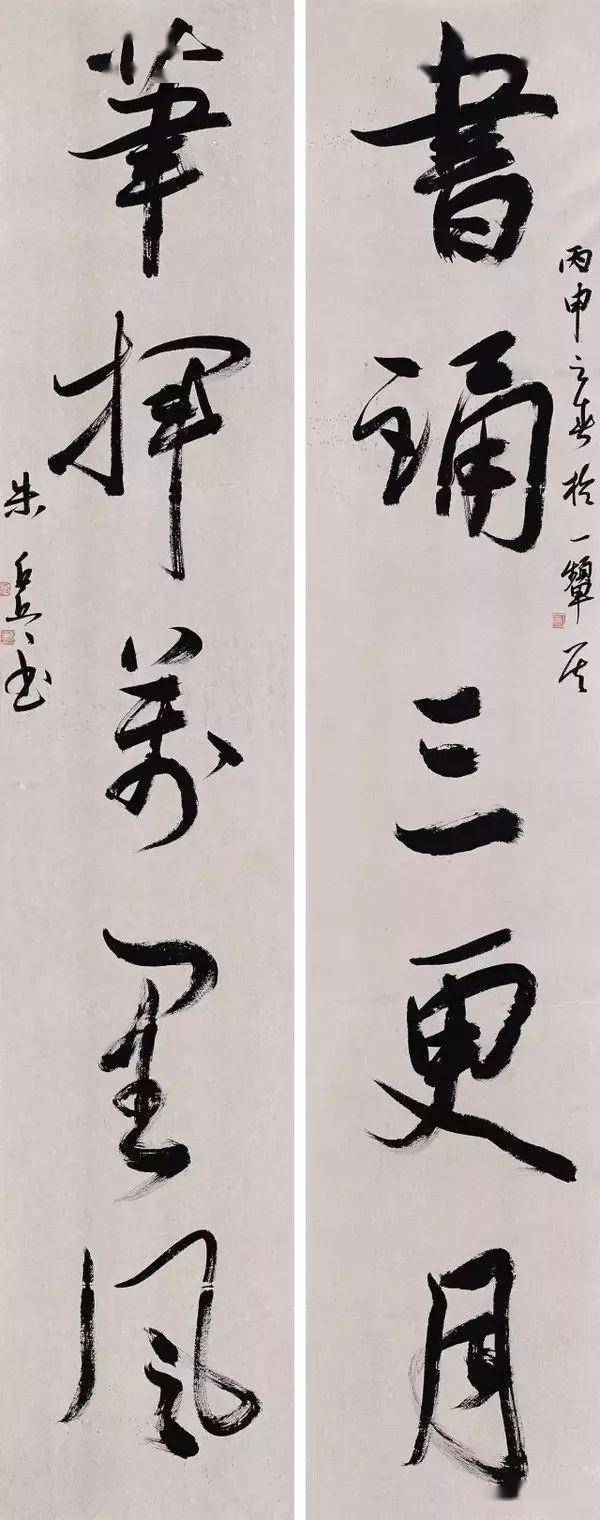 丙申之春於一
書誦三更月
筆揮萬里風
朱 書